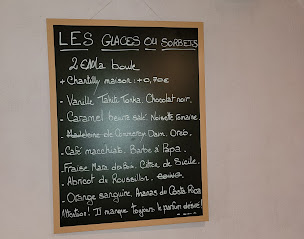 LES GLACES OU SORBETS
2€ la boule
+ Chantilly maison : + 0,70€
- Vanille Tahiti Tonka. Chocolat noir.
- Caramel beurre salé. Noisette Romaine.
- Madeleine de Commercy Dam. Oréo.
- Café macchiato. Barbe à Papa.
- Fraise Mara des Bois. Citron de Sicile.
- Abricot du Roussillon.
- Orange sanguine. Ananas de Costa Rica
Attention ! Il manque toujours le parfum désiré !